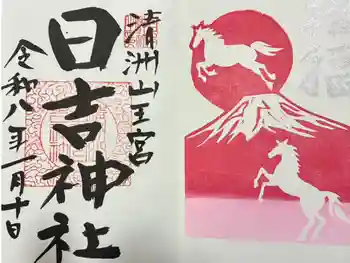 清洲山王宮
日吉神社
令和八年一月十日